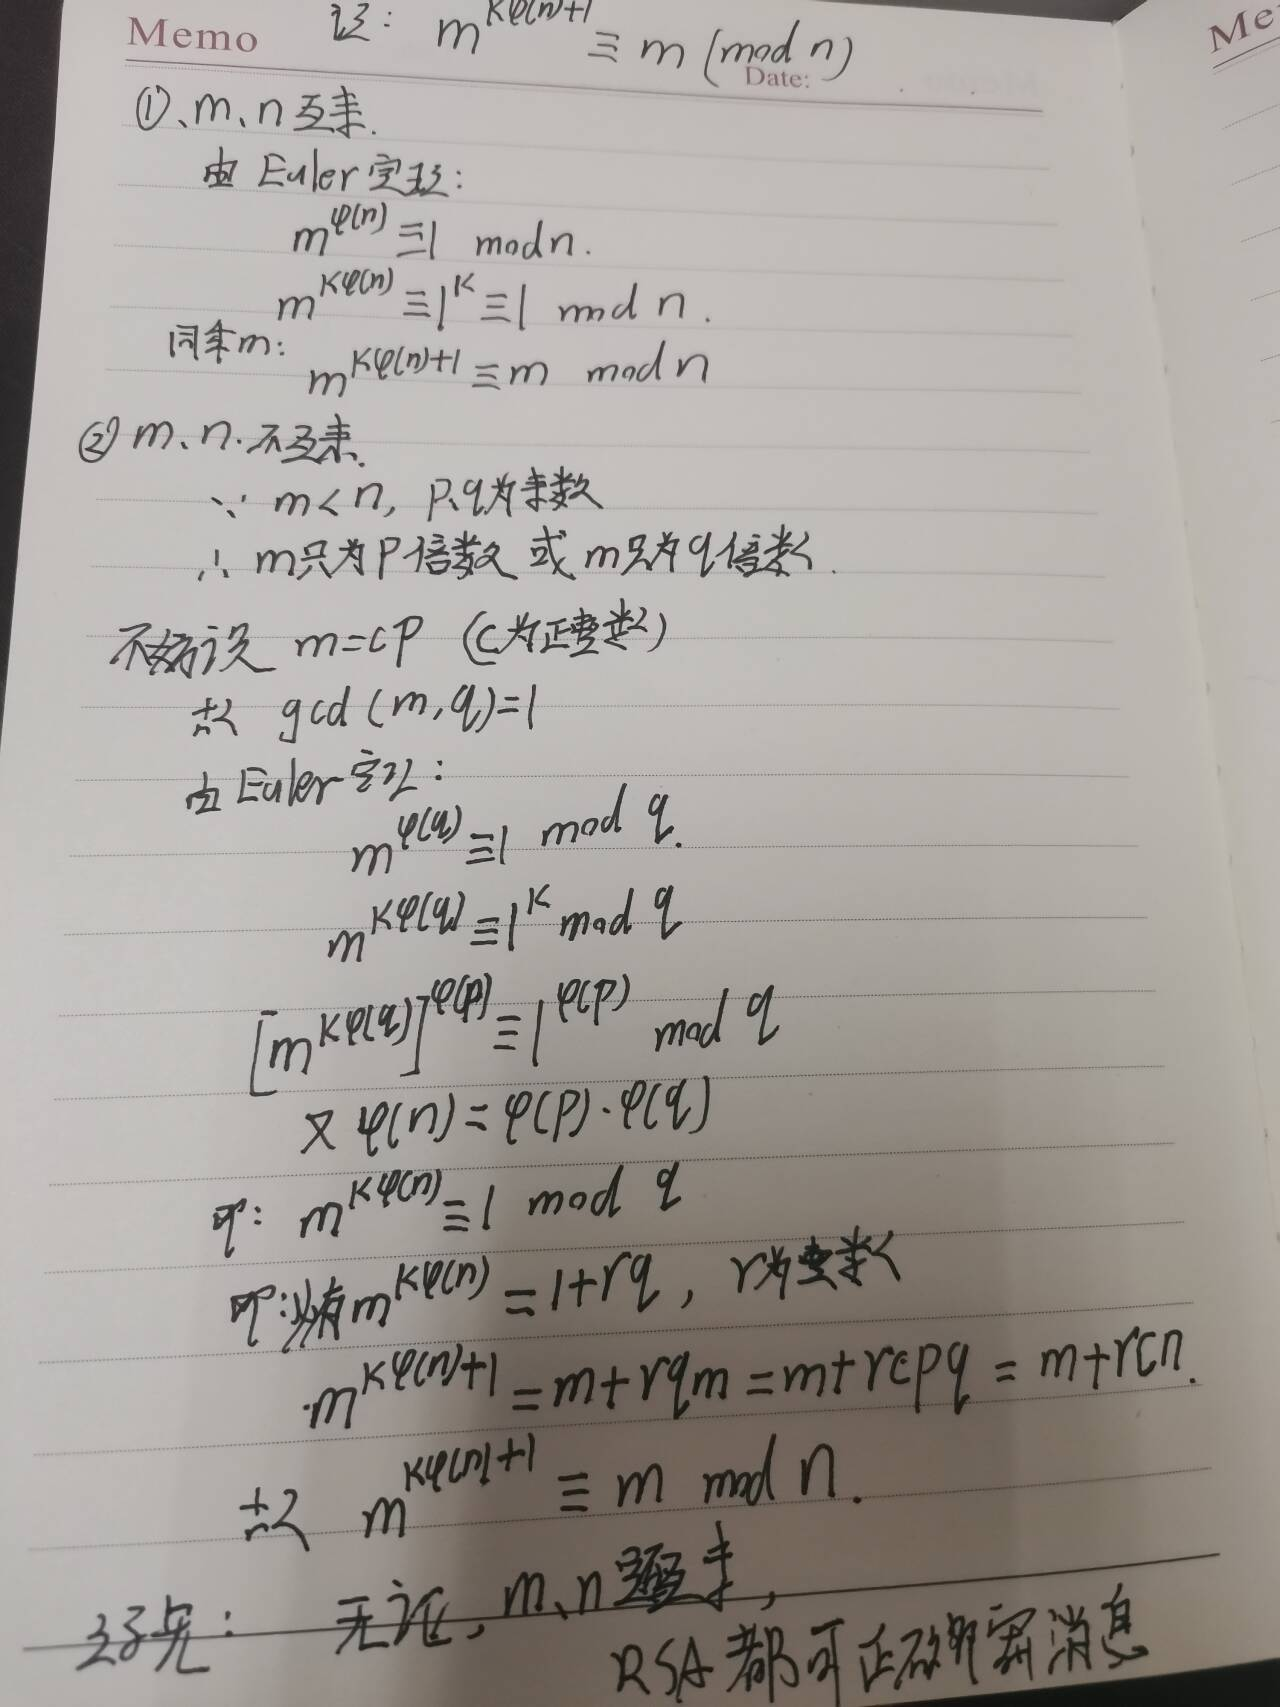 Memo 证: m^{kφ(n)+1} ≡ m (mod n)
Date:
①、m、n互素.
由 Euler 定理:
m^{φ(n)} ≡1 mod n.
m^{kφ(n)} ≡1^k ≡1 mod n.
同乘m: m^{kφ(n)+1} ≡ m mod n
② m、n.不互素.
∵ m<n, p、q为素数
∴ m只为p倍数 或 m只为q倍数.
不妨设 m=cp (c为正整数)
故 gcd(m,q)=1
由Euler定理:
m^{φ(q)} ≡1 mod q.
m^{kφ(q)} ≡1^k mod q
[m^{kφ(q)}]^{φ(p)} ≡1^{φ(p)} mod q
又 φ(n)=φ(p)·φ(q)
即: m^{kφ(n)} ≡1 mod q
即:必有m^{kφ(n)} =1+rq, r为整数
m^{kφ(n)+1} =m+rqm=m+rcpq=m+rcn.
故 m^{kφ(n)+1} ≡ m mod n.
综上: 无论, m、n是否互素,
RSA 都可正确解密消息